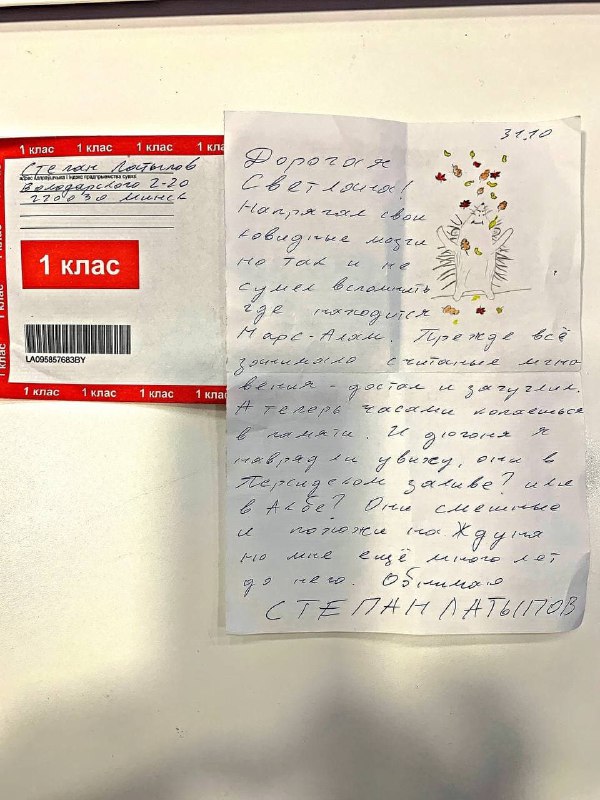 1 клас 1 клас 1 клас 1 кла
Степан Латыпов
Володарского 2-20
220030 Минск
1 клас
LA095857683BY
1 клас 1 клас 1 клас 1 клас
1 клас
31.10
Дорогая
Светлана!
Напрягал свои
ковидные мозги
но так и не
сумел вспомнить
где находится
Марс-Алам. Прежде всё
занимало считаные мгно
вения - достал и загуглил.
А теперь часами копаешься
в памяти. И дюгоня я
наврядли увижу, они в
Персидском заливе? или
в Акбе? Они смешные
и похожи на Ждуна
но мне ещё много лет
до него. Обнимая
СТЕПАН ЛАТЫПОВ